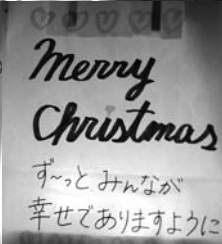 Merry
Christmas
ず～っとみんなが
幸せでありますように